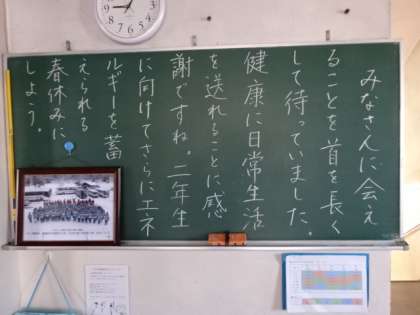 みなさんに会え
ることを首を長く
して待っていました。
健康に日常生活
を送れることに感
謝ですね。二年生
に向けてさらにエネ
ルギーを蓄
えられる
春休みに
しよう。